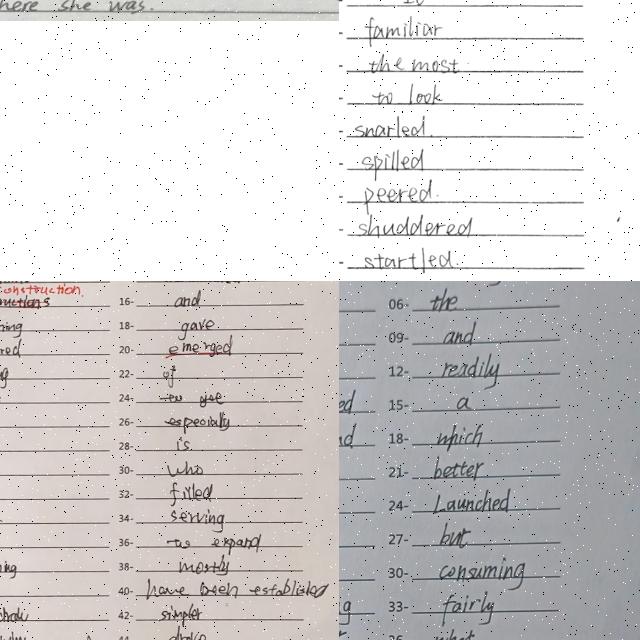 here she was.
familiar
the most
to look
snarled
spilled
peered.
shuddered
startled.
onstruction
16- and
18- gave
20- emerged
22- of
24- to give
26- especially
28- is
30- who
32- filled
34- serving
36- to expand
38- mostly
40- have been established
42- simpler
06- the
09- and
12- readily
15- a
18- which
21- better
24- Launched
27- but
30- consuming
33- fairly
what